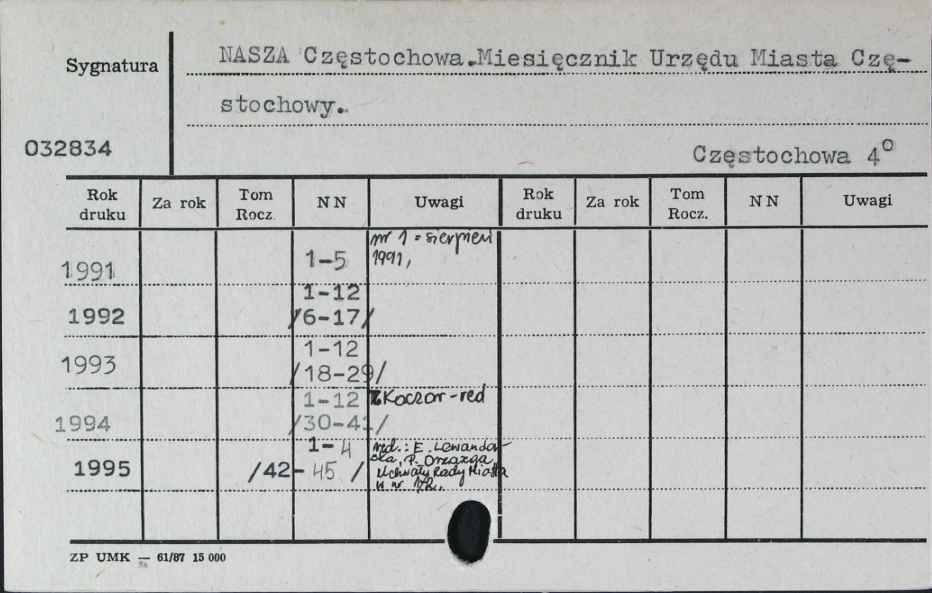 Sygnatura
NASZA Częstochowa.Miesięcznik Urzędu Miasta Czę-
stochowy.
032834
Częstochowa 4°
Rok druku Za rok Tom Rocz. NN Uwagi Rok druku Za rok Tom Rocz. NN Uwagi
nr 1 = sierpień
1991 1-5 1991,
1-12
1992 /6-17/
1-12
1993 /18-29/
1-12 Koczor - red
1994 /30-41/
1-4 red.: E. Lewandow-
ska, P. Orzazga
1995 /42-45/ Uchwały Rady Miasta
w nr
ZP UMK — 61/87 15 000